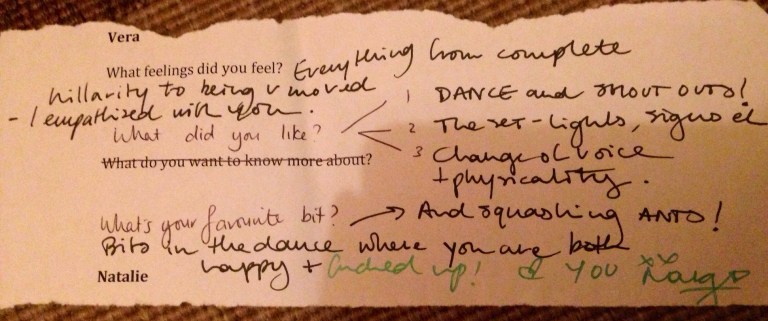 Vera
What feelings did you feel? Everything from complete
hillarity to being v moved
- I empathized with you.
What did you like?
1 DANCE and SHOUT OUTS!
2 The set - lights, signs el
3 Change of voice
+ physicality.
What do you want to know more about?
What's your favourite bit? → And squashing ANTS!
Bits in the dance where you are both
happy + fucked up! & YOU xx
Natalie